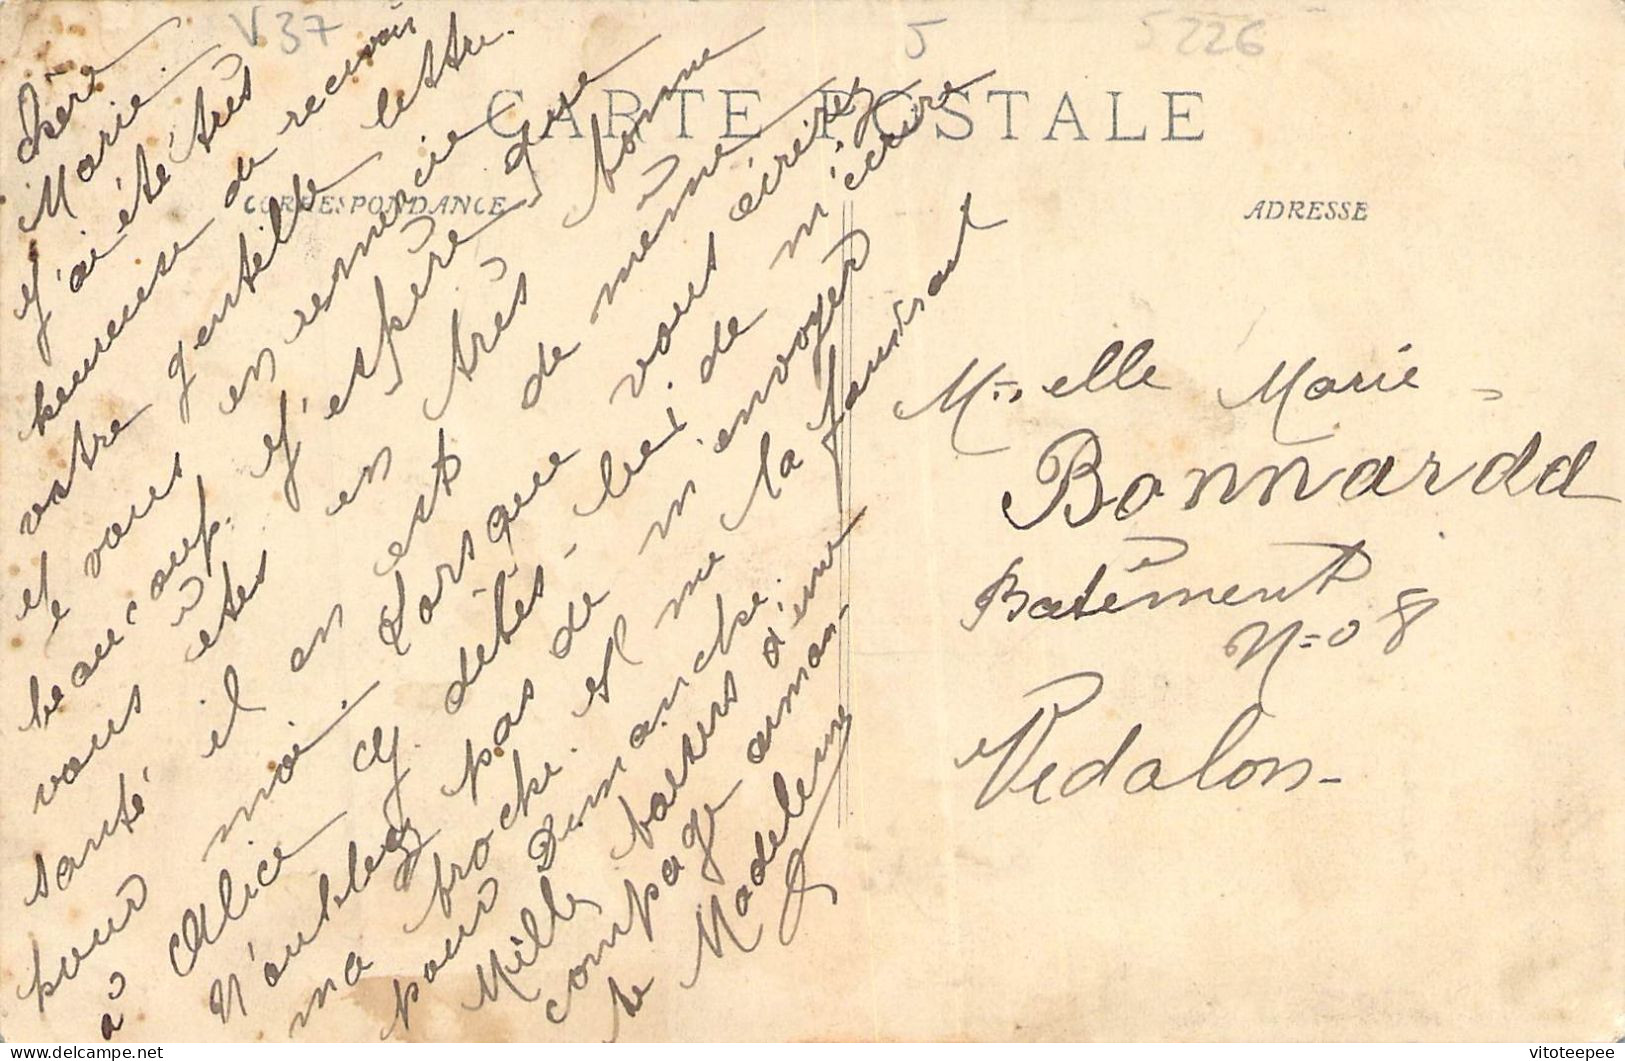 V 37
5
5226
CARTE POSTALE
CORRESPONDANCE
ADRESSE
Chère
Marie.
J'ai été très
heureuse de recevoir
votre gentille lettre.
et vous en remercie
beaucoup. J'espère que
vous êtes en très bonne
santé il en est de même
pour moi. Lorsque vous écrirez
à Alice dites-lui de m'écrire
N'oubliez pas de m'envoyer
ma broche. et me la faisant
pour Dimanche.
Mille baisers d'une
compagne aiman-
te Madeleine
Melle Marie
Bonnardd
Batêment
N=o 8
Vedalon-
vitoteepee